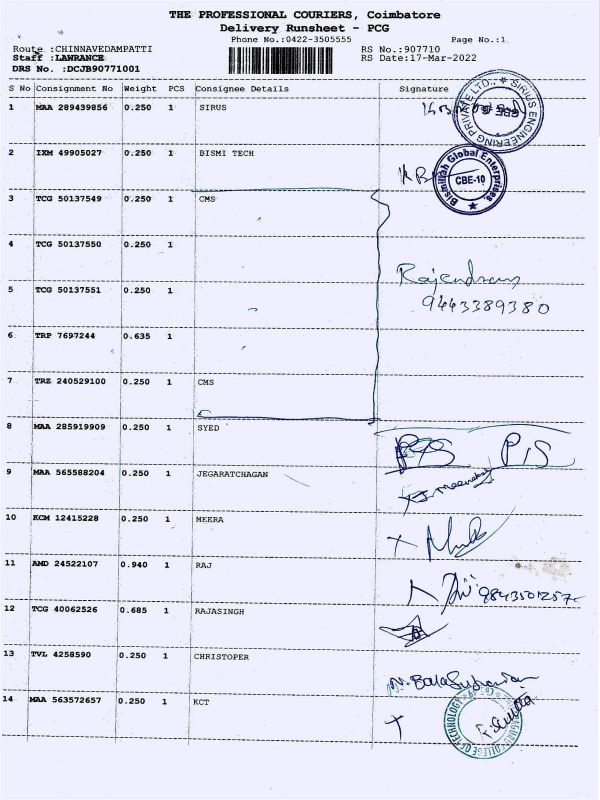 THE PROFESSIONAL COURIERS, Coimbatore
Delivery Runsheet - PCG
Phone No.:0422-3505555 Page No.:1
Route :CHINNAVEDAMPATTI RS No.:907710
Staff :LAWRANCE RS Date:17-Mar-2022
DRS No. :DCJB90771001
S No Consignment No Weight PCS Consignee Details Signature
1 MAA 289439856 0.250 1 SIRUS
SIRUS ENGINEERING PRIVATE LTD.,
2 IXM 49905027 0.250 1 BISMI TECH
Bismillah Global Enterprises
CBE-10
3 TCG 50137549 0.250 1 CMS
4 TCG 50137550 0.250 1
5 TCG 50137551 0.250 1
Rajendran
9443389380
6 TRP 7697244 0.635 1
7 TRZ 240529100 0.250 1 CMS
8 MAA 285919909 0.250 1 SYED
9 MAA 565588204 0.250 1 JEGARATCHAGAN
10 KCM 12415228 0.250 1 MEERA
11 AMD 24522107 0.940 1 RAJ
9843501257
12 TCG 40062526 0.685 1 RAJASINGH
13 TVL 4258590 0.250 1 CHRISTOPER
14 MAA 563572657 0.250 1 KCT
COLLEGE OF TECHNOLOGY